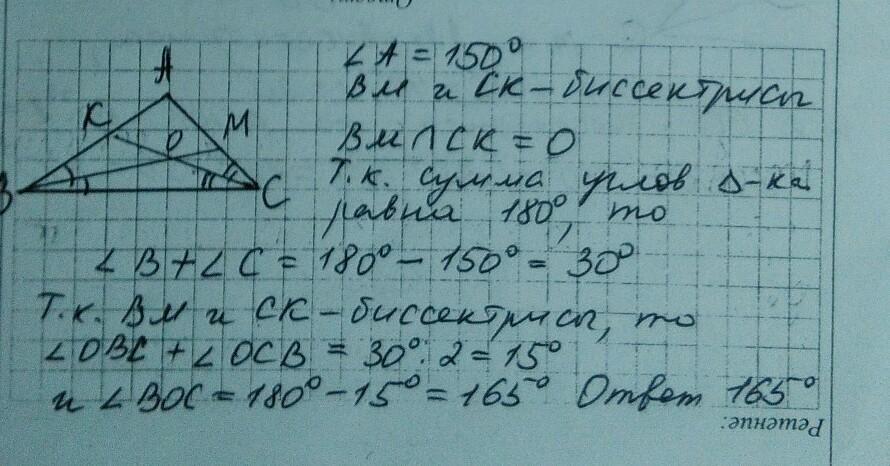 Ответ:
∠A = 150°
BM и CK – биссектрисы
BM ∩ CK = O
Т.к. сумма углов Δ-ка
равна 180°, то
∠B + ∠C = 180° – 150° = 30°
Т.к. BM и CK – биссектрисы, то
∠OBC + ∠OCB = 30° : 2 = 15°
и ∠BOC = 180° – 15° = 165° Ответ 165°
A
K
O
M
B
C
Решение: